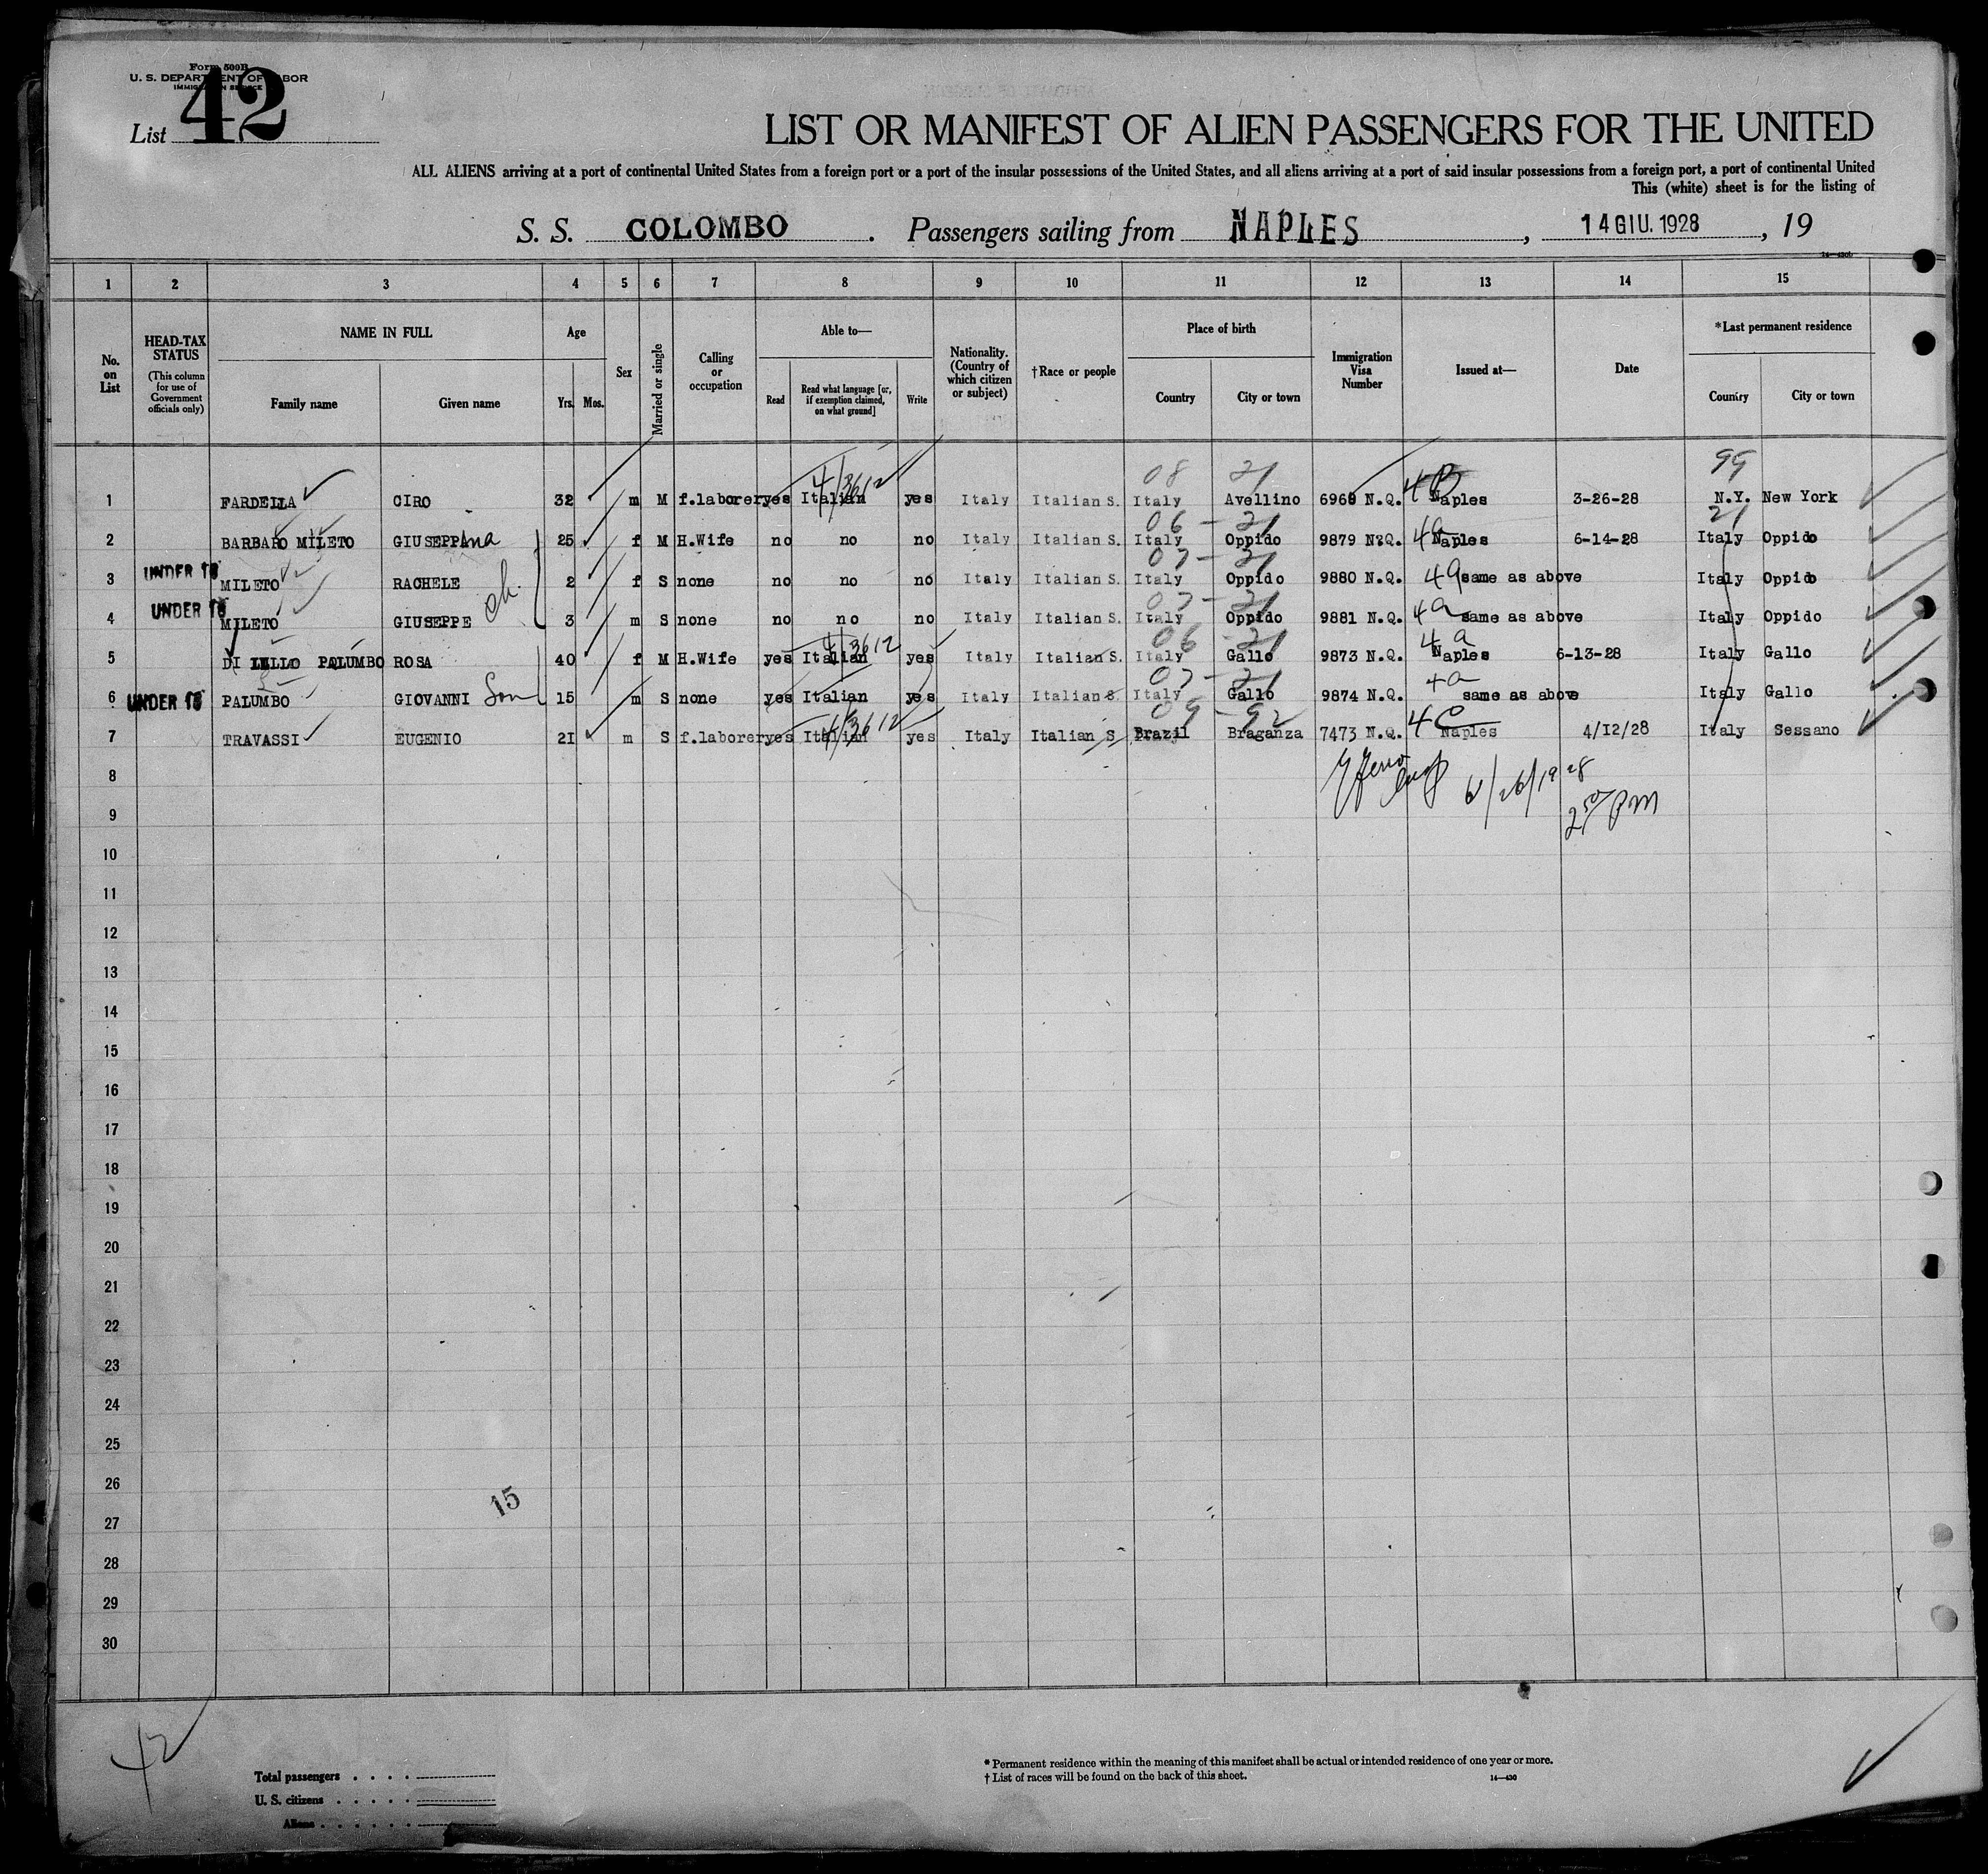 Form 500B
U. S. DEPARTMENT OF LABOR
IMMIGRATION SERVICE
List 42
LIST OR MANIFEST OF ALIEN PASSENGERS FOR THE UNITED
ALL ALIENS arriving at a port of continental United States from a foreign port or a port of the insular possessions of the United States, and all aliens arriving at a port of said insular possessions from a foreign port, a port of continental United
This (white) sheet is for the listing of
S. S. COLOMBO. Passengers sailing from NAPLES, 14 GIU. 1928, 19
14—430b
1 2 3 4 5 6 7 8 9 10 11 12 13 14 15
No. on List
HEAD-TAX STATUS (This column for use of Government officials only)
NAME IN FULL Family name Given name
Age Yrs. Mos.
Sex
Married or single
Calling or occupation
Able to— Read Read what language [or, if exemption claimed, on what ground] Write
Nationality. (Country of which citizen or subject)
†Race or people
Place of birth Country City or town
Immigration Visa Number
Issued at—
Date
*Last permanent residence Country City or town
08 21 4B 99
1 FARDELLA CIRO 32 m M f.laborer yes Italian 4/3612 yes Italy Italian S. Italy Avellino 6969 N.Q. Naples 3-26-28 N.Y. New York
06 - 21 21
2 BARBARO MILETO GIUSEPPINA 25 f M H.Wife no no no Italy Italian S. Italy Oppido 9879 N.Q. 4a Naples 6-14-28 Italy Oppido
07 - 21
3 UNDER 16 MILETO RACHELE 2 f S none no no no Italy Italian S. Italy Oppido 9880 N.Q. 4a same as above Italy Oppido
ch.
07 - 21
4 UNDER 16 MILETO GIUSEPPE 3 m S none no no no Italy Italian S. Italy Oppido 9881 N.Q. 4a same as above Italy Oppido
06 - 21 4a
5 DI LILLO PALUMBO ROSA 40 f M H.Wife yes Italian 4/3612 yes Italy Italian S. Italy Gallo 9873 N.Q. Naples 6-13-28 Italy Gallo
07 - 21 4a
6 UNDER 16 PALUMBO GIOVANNI Son 15 m S none yes Italian yes Italy Italian S. Italy Gallo 9874 N.Q. same as above Italy Gallo
09 - 92 4C
7 TRAVASSI EUGENIO 21 m S f.laborer yes Italian 4/3612 yes Italy Italian S Brazil Braganza 7473 N.Q. Naples 4/12/28 Italy Sessano
6/26/1928
2 50 PM
8
9
10
11
12
13
14
15
16
17
18
19
20
21
22
23
24
25
26
15
27
28
29
30
42
Total passengers
U. S. citizens
Aliens
* Permanent residence within the meaning of this manifest shall be actual or intended residence of one year or more.
† List of races will be found on the back of this sheet.
14—430